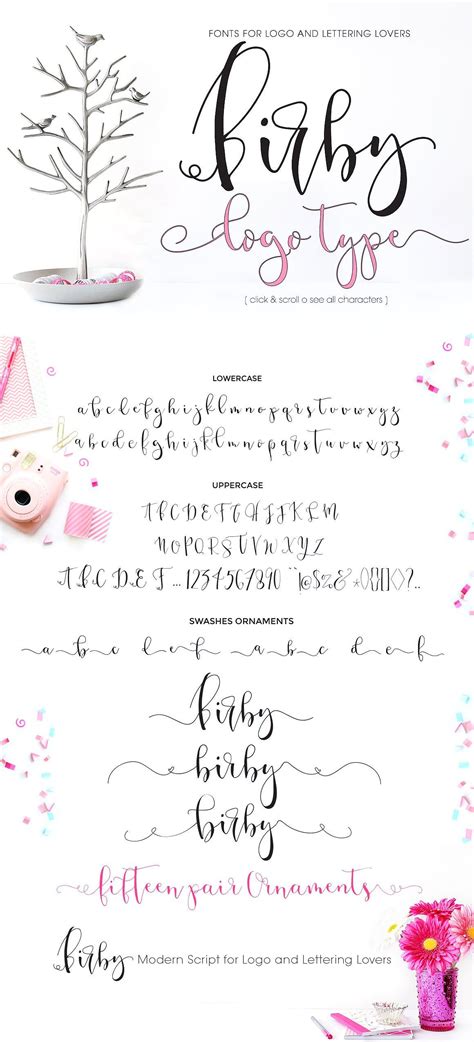 FONTS FOR LOGO AND LETTERING LOVERS
Birby
logo type
{ click & scroll o see all characters }
LOWERCASE
a b c d e f g h i j k l m n o p q r s t u v w x y z
a b c d e f g h i j k l m n o p q r s t u v w x y z
UPPERCASE
A B C D E F G H I J K L M
N O P Q R S T U V W X Y Z
A B C D E F ... 1234567890 @$&*(){}[]<>?..
SWASHES ORNAMENTS
a b c d e f a b c d e f
Birby
birby
birby
fifteen pair Ornaments
Birby Modern Script for Logo and Lettering Lovers